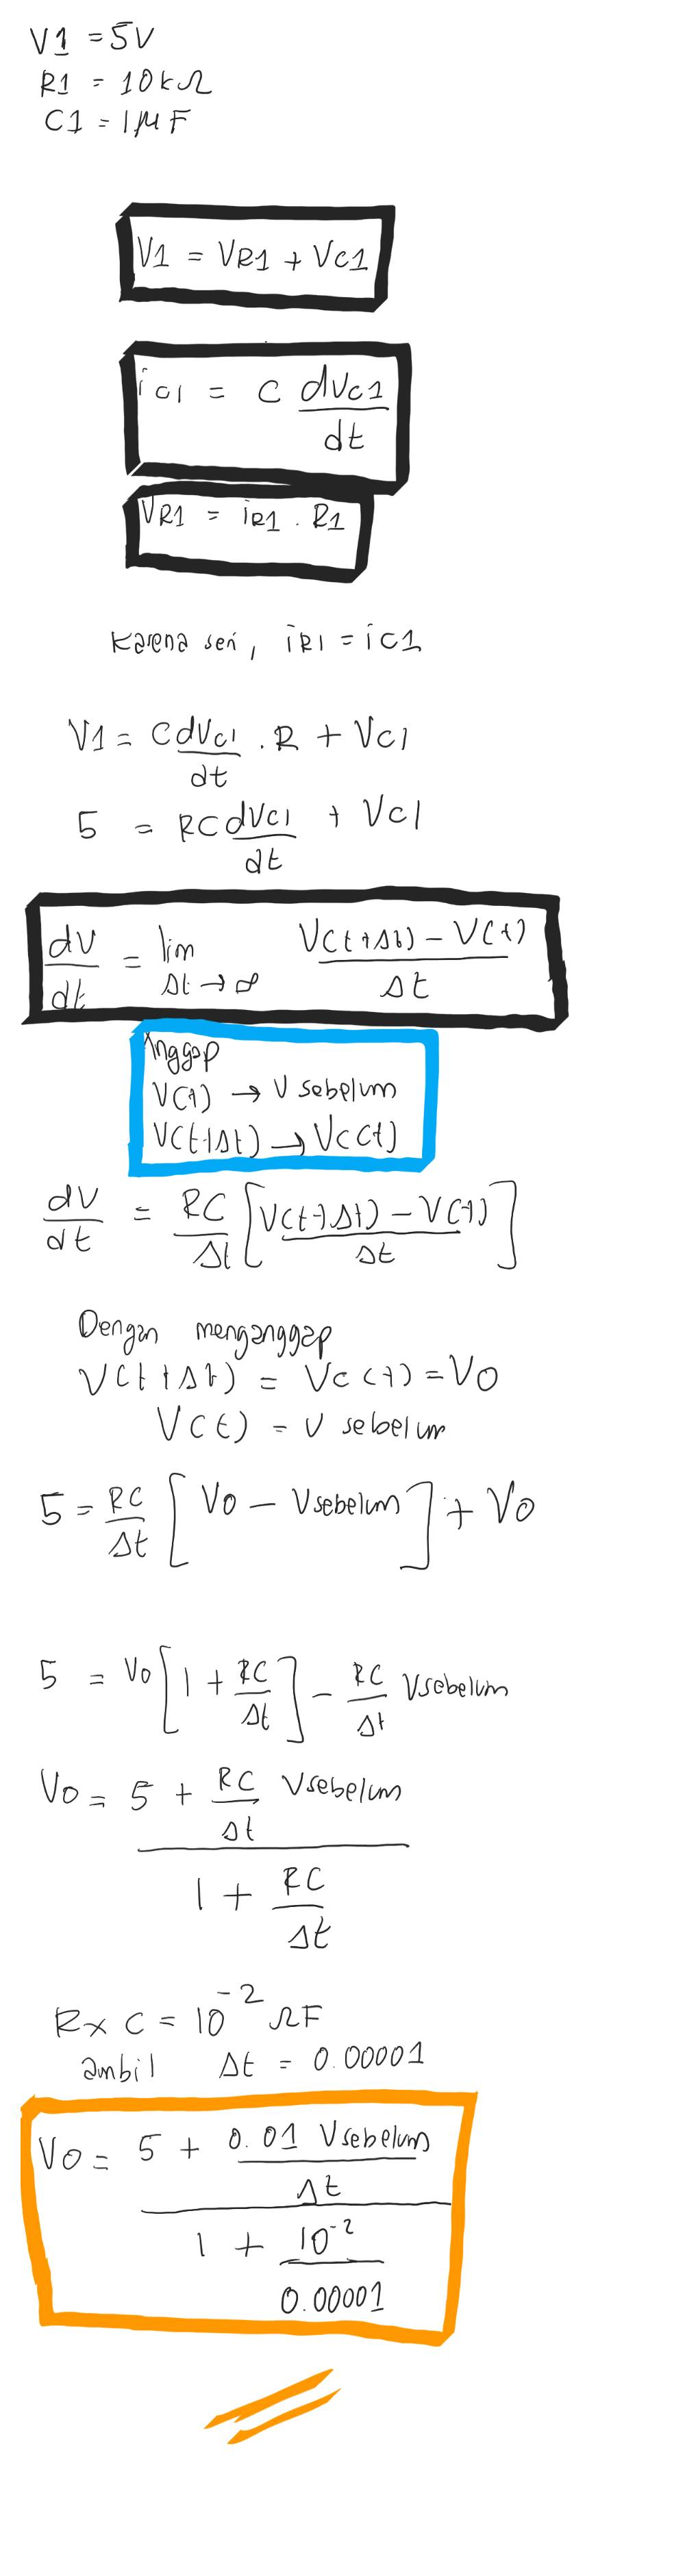 V1 = 5V
R1 = 10kΩ
C1 = 1μF
V1 = VR1 + VC1
iC1 = C dVC1/dt
VR1 = iR1 . R1
Karena seri, iR1 = iC1
V1 = C dVC1/dt . R + VC1
5 = RC dVC1/dt + VC1
dV/dt = lim Δt→∞ V(t+Δt) - V(t)/Δt
Anggap
V(t) → V sebelum
V(t+Δt) → Vc(t)
dV/dt = RC/Δt [V(t+Δt) - V(t)/Δt]
Dengan menganggap
V(t+Δt) = Vc(t) = Vo
V(t) = V sebelum
5 = RC/Δt [Vo - Vsebelum] + Vo
5 = Vo [1 + RC/Δt] - RC/Δt Vsebelum
Vo = 5 + RC/Δt Vsebelum / 1 + RC/Δt
R x C = 10^-2 ΩF
ambil Δt = 0.00001
Vo = 5 + 0.01 Vsebelum/Δt / 1 + 10^-2/0.00001